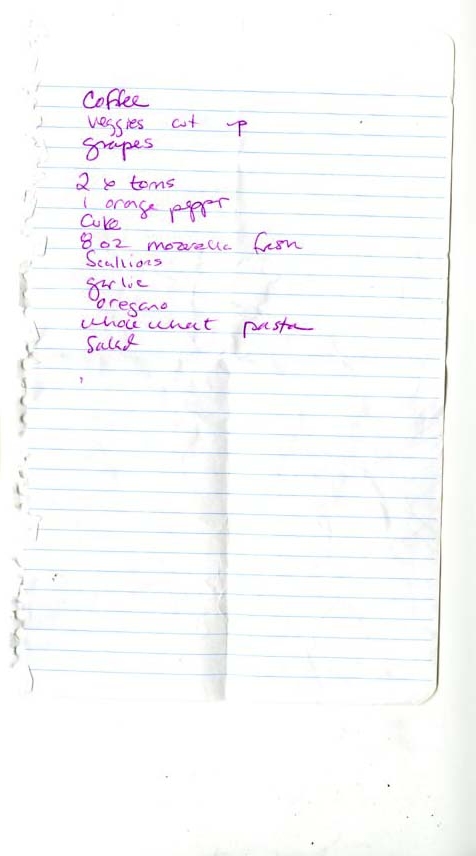 Coffee
veggies cut up
grapes
2 toms
1 orange pepper
Cuke
8 oz mozarella fresh
Scallions
garlic
oregano
whole wheat pasta
Salad